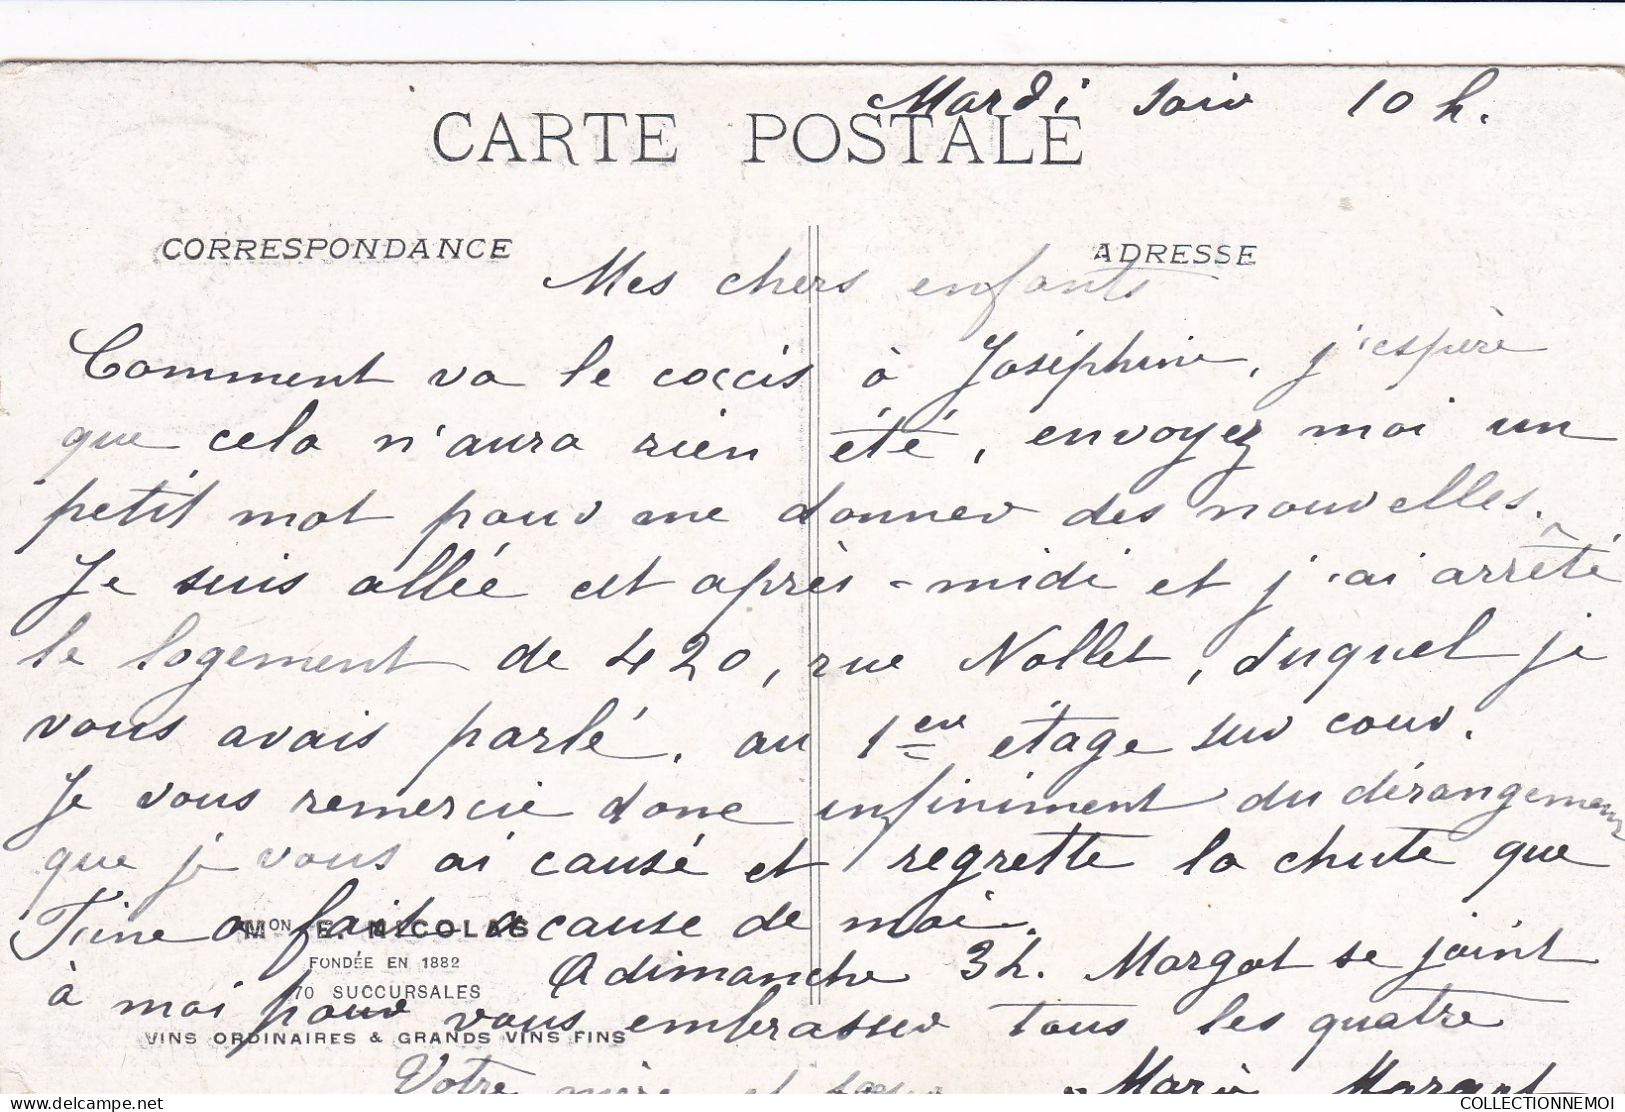 Mardi soir 10 h.
CARTE POSTALE
CORRESPONDANCE
ADRESSE
Mes chers enfants
Comment va le coccis à Joséphine, j'espère
que cela n'aura rien été, envoyez moi un
petit mot pour me donner des nouvelles.
Je suis allée cet après-midi et j'ai arrêté
le logement de 420, rue Nollet, duquel je
vous avais parlé. au 1er étage sur cour.
Je vous remercie donc infiniment du dérangement
que je vous ai causé et regrette la chute que
Fine a fait a cause de moi.
A dimanche 3 h. Margot se joint
à moi pour vous embrasser tous les quatre
Votre mère et sœur Marie Margot
MON E. NICOLAS
FONDÉE EN 1882
70 SUCCURSALES
VINS ORDINAIRES & GRANDS VINS FINS
COLLECTIONNEMOI